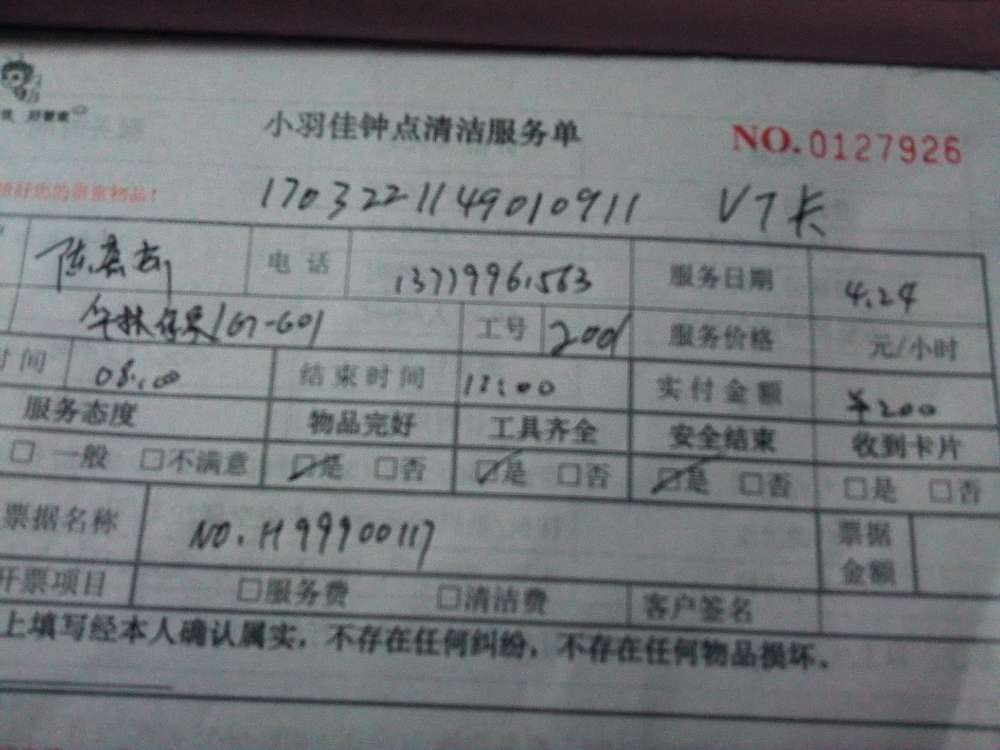 好管家
小羽佳钟点清洁服务单 NO.0127926
好您的贵重物品!
1703221149010911 V7卡
电话 13719961563 服务日期 4.24
167-601 工号 2001 服务价格 元/小时
时间 08:00 结束时间 12:00 实付金额 ¥200
服务态度 物品完好 工具齐全 安全结束 收到卡片
□一般 □不满意 □是 □否 □是 □否 □是 □否 □是 □否
票据名称 NO.H99900117 票据金额
开票项目 □服务费 □清洁费 客户签名
上填写经本人确认属实，不存在任何纠纷，不存在任何物品损坏。